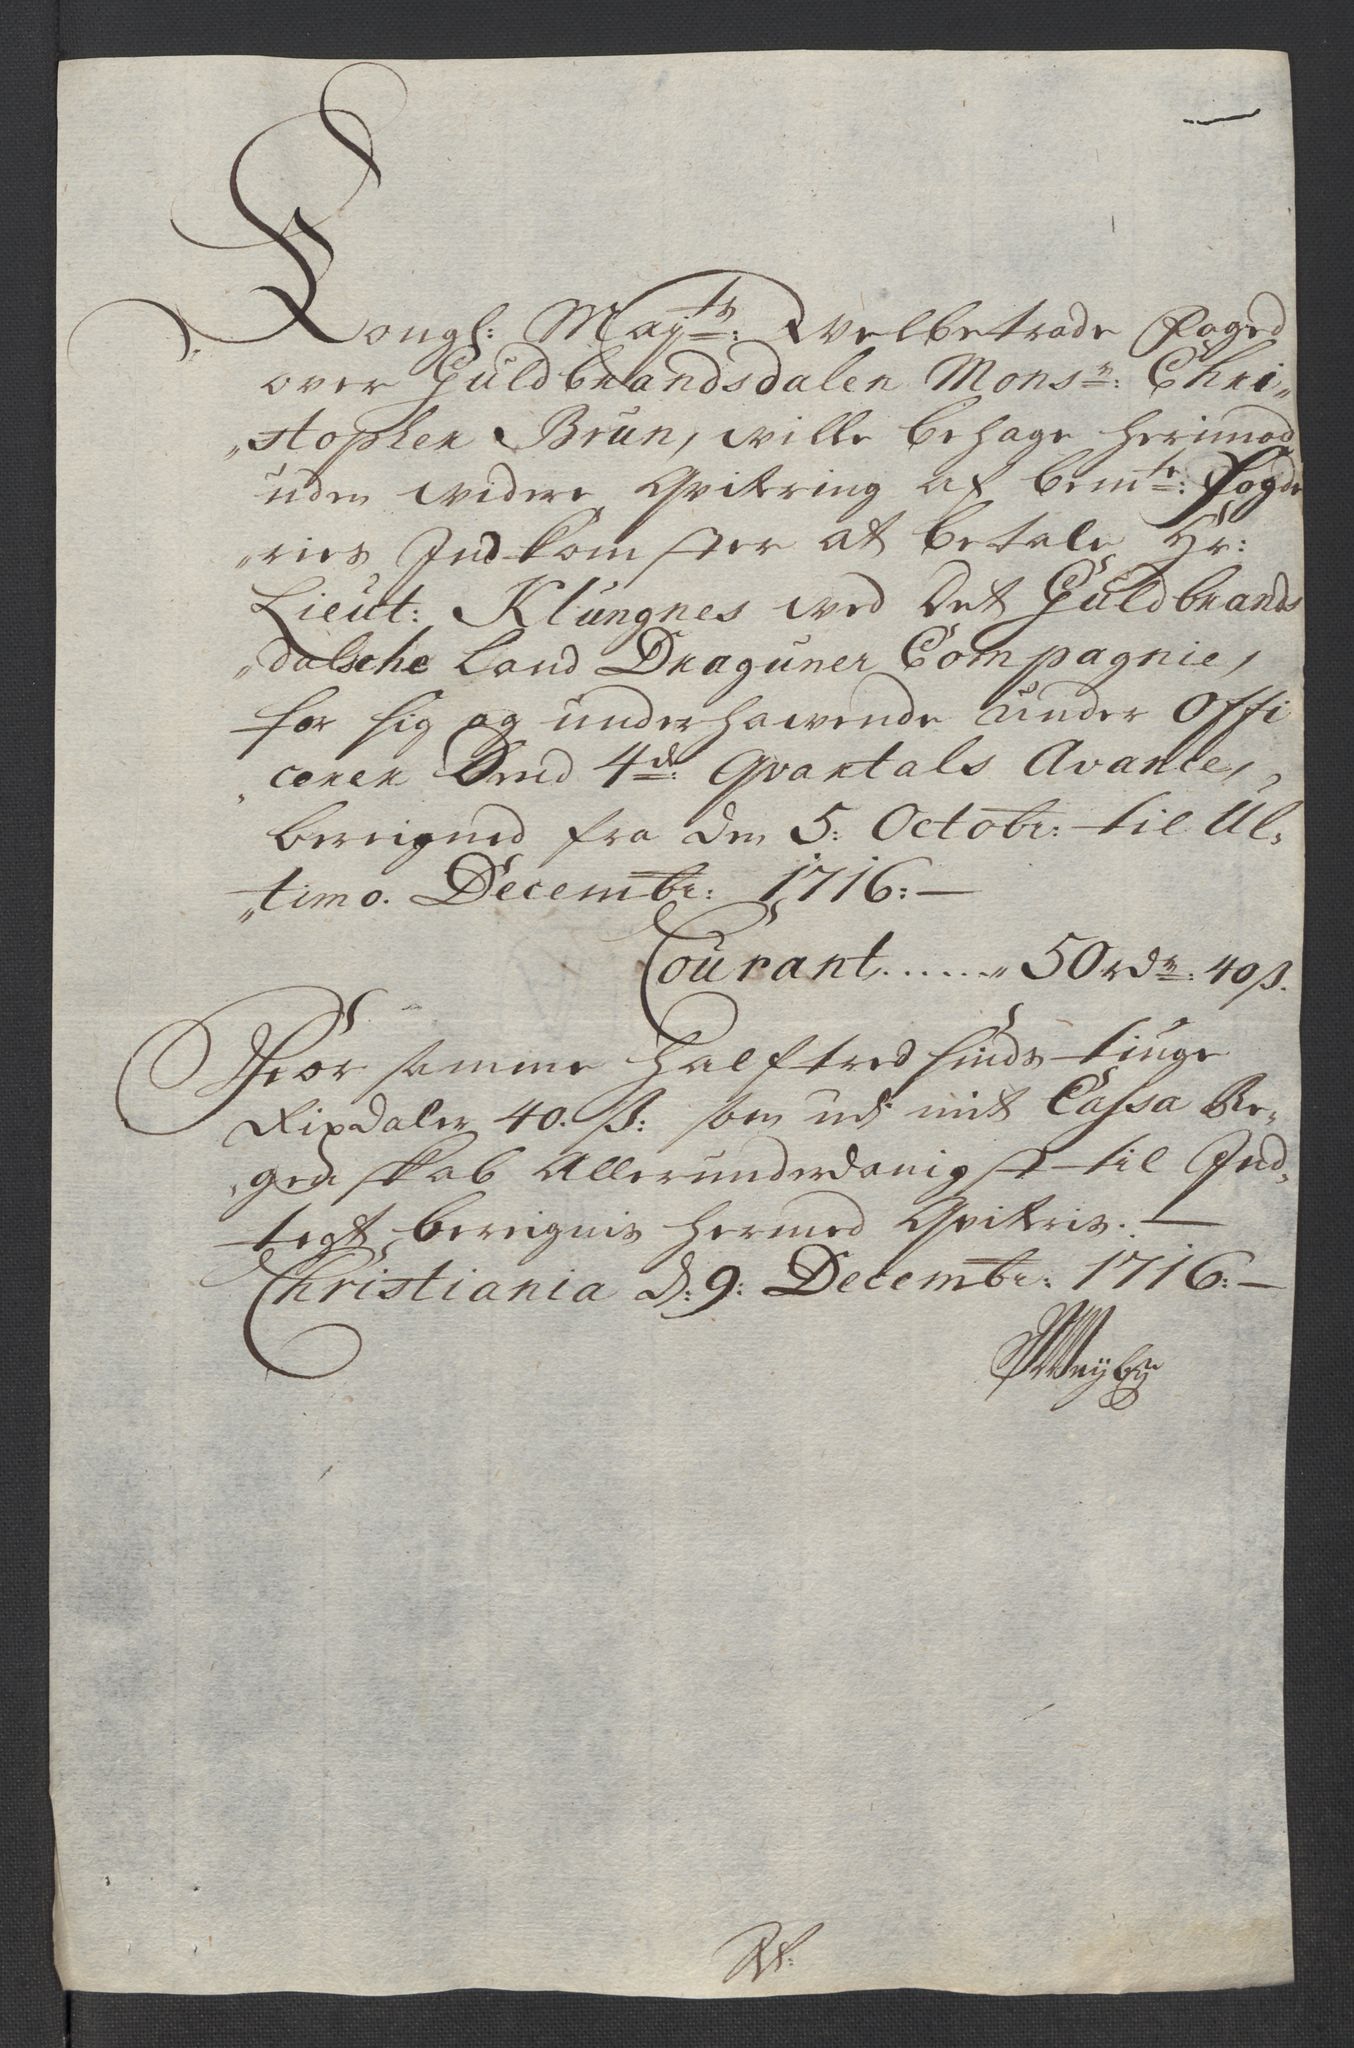 Kongl: Maj:ts: Velbetrode Foged
over Guldbrandsdalen Monsr: Chri„
„stopher Brun, wille behage herimod
uden widere Qvitering af bemte: Fogde
„ries Indkomster at betale Hr:
Lieut: Klüngnes wed det Guldbrands
„dalsche Land Draguner Compagnie,
for sig og underhawende Under Offi
„cerer Dend 4de: Qvartals Avance,
bereigned fra den 5: Octobr: til Ul„
„timo. Decembr: 1716:—
Courant......„ 50 rdr: 40 ß.
Hvor samme halftredsinds tiuge
Rixdaler 40. ß: som udi mit Cassa Re„
„genskab Allerunderdanigst til Ind„
tegt bereignis hermed Qviteris.—
Christiania d: 9: Decembr: 1716:—
Weyby